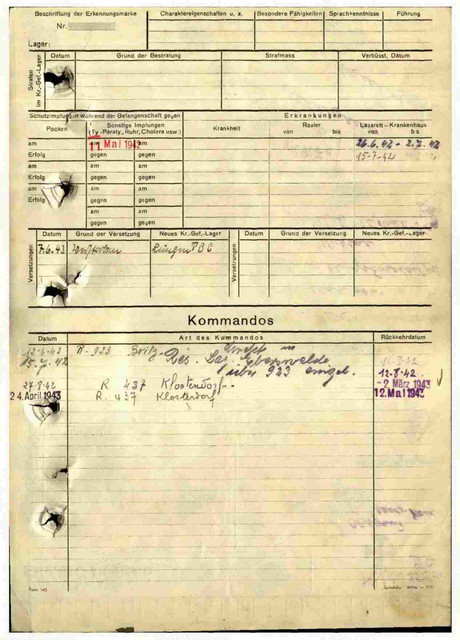 Beschriftung der Erkennungsmarke
Nr.
Lager:
Charaktereigenschaften u. a.
Besondere Fähigkeiten
Sprachkenntnisse
Führung
Strafen im Kr.-Gef.-Lager
Datum
Grund der Bestrafung
Strafmass
Verbüsst, Datum
Schutzimpfungen während der Gefangenschaft gegen
Erkrankungen
Pocken
Sonstige Impfungen
(Ty-Paraty., Ruhr, Cholera usw.)
Krankheit
Revier
von bis
Lazarett - Krankenhaus
von bis
am
am
am
11. Mai 1942
26.6.42 - 2.7.42
Erfolg
gegen
gegen
15.7.42
am
am
am
Erfolg
gegen
gegen
am
am
am
Erfolg
gegen
gegen
am
am
gegen
gegen
Versetzungen
Datum
Grund der Versetzung
Neues Kr.-Gef.-Lager
Versetzungen
Datum
Grund der Versetzung
Neues Kr.-Gef.-Lager
7.6.43
Kommandos
Datum
Art des Kommandos
Rückkehrdatum
12.6.42 R. 923 Britz
15.7.42 Res. Laz. Eberswalde
über 923 12.8.42
27.8.42 R 437 Klosterdorf - 2 März 1943
24. April 1943 R. 437 Klosterdorf 12. Mai 1943